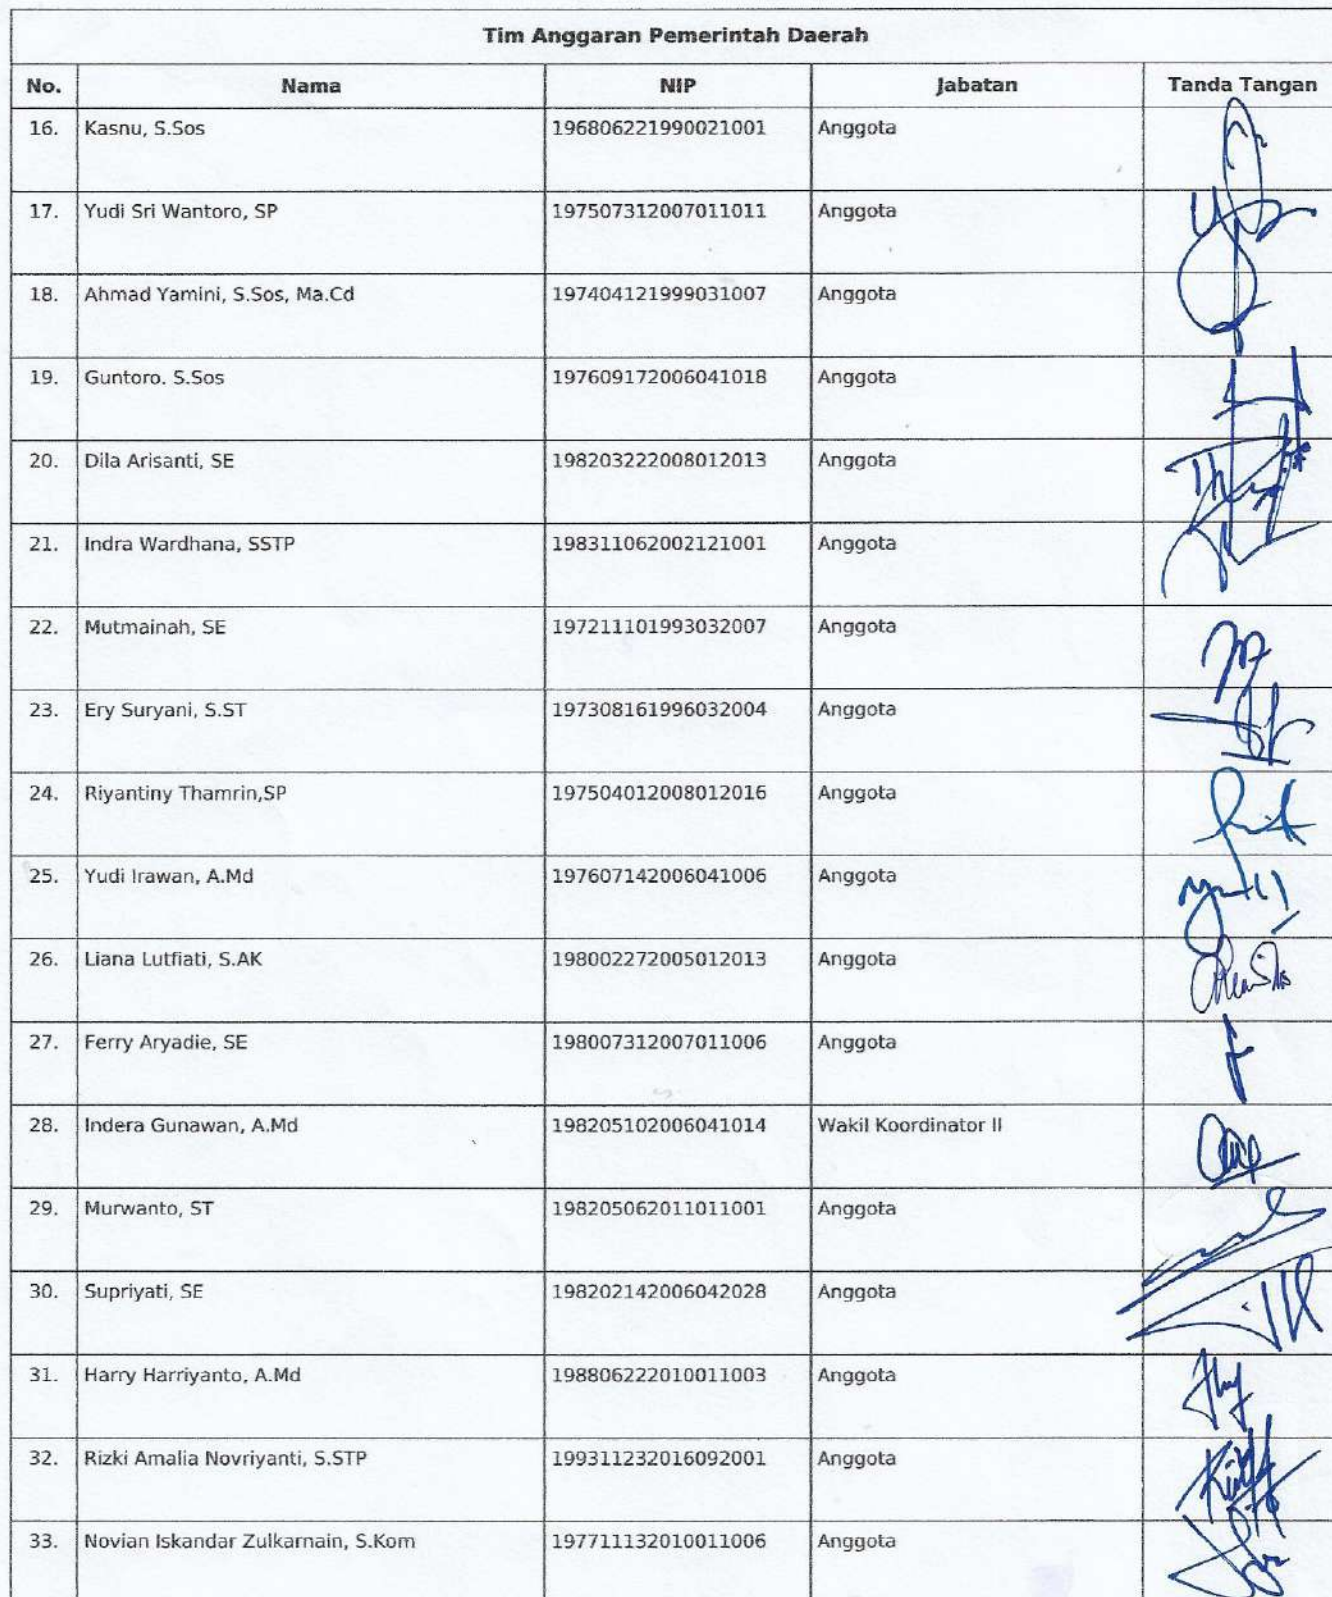 Tim Anggaran Pemerintah Daerah
No. Nama NIP Jabatan Tanda Tangan
16. Kasnu, S.Sos 196806221990021001 Anggota
17. Yudi Sri Wantoro, SP 197507312007011011 Anggota
18. Ahmad Yamini, S.Sos, Ma.Cd 197404121999031007 Anggota
19. Guntoro. S.Sos 197609172006041018 Anggota
20. Dila Arisanti, SE 198203222008012013 Anggota
21. Indra Wardhana, SSTP 198311062002121001 Anggota
22. Mutmainah, SE 197211101993032007 Anggota
23. Ery Suryani, S.ST 197308161996032004 Anggota
24. Riyantiny Thamrin,SP 197504012008012016 Anggota
25. Yudi Irawan, A.Md 197607142006041006 Anggota
26. Liana Lutfiati, S.AK 198002272005012013 Anggota
27. Ferry Aryadie, SE 198007312007011006 Anggota
28. Indera Gunawan, A.Md 198205102006041014 Wakil Koordinator II
29. Murwanto, ST 198205062011011001 Anggota
30. Supriyati, SE 198202142006042028 Anggota
31. Harry Harriyanto, A.Md 198806222010011003 Anggota
32. Rizki Amalia Novriyanti, S.STP 199311232016092001 Anggota
33. Novian Iskandar Zulkarnain, S.Kom 197711132010011006 Anggota